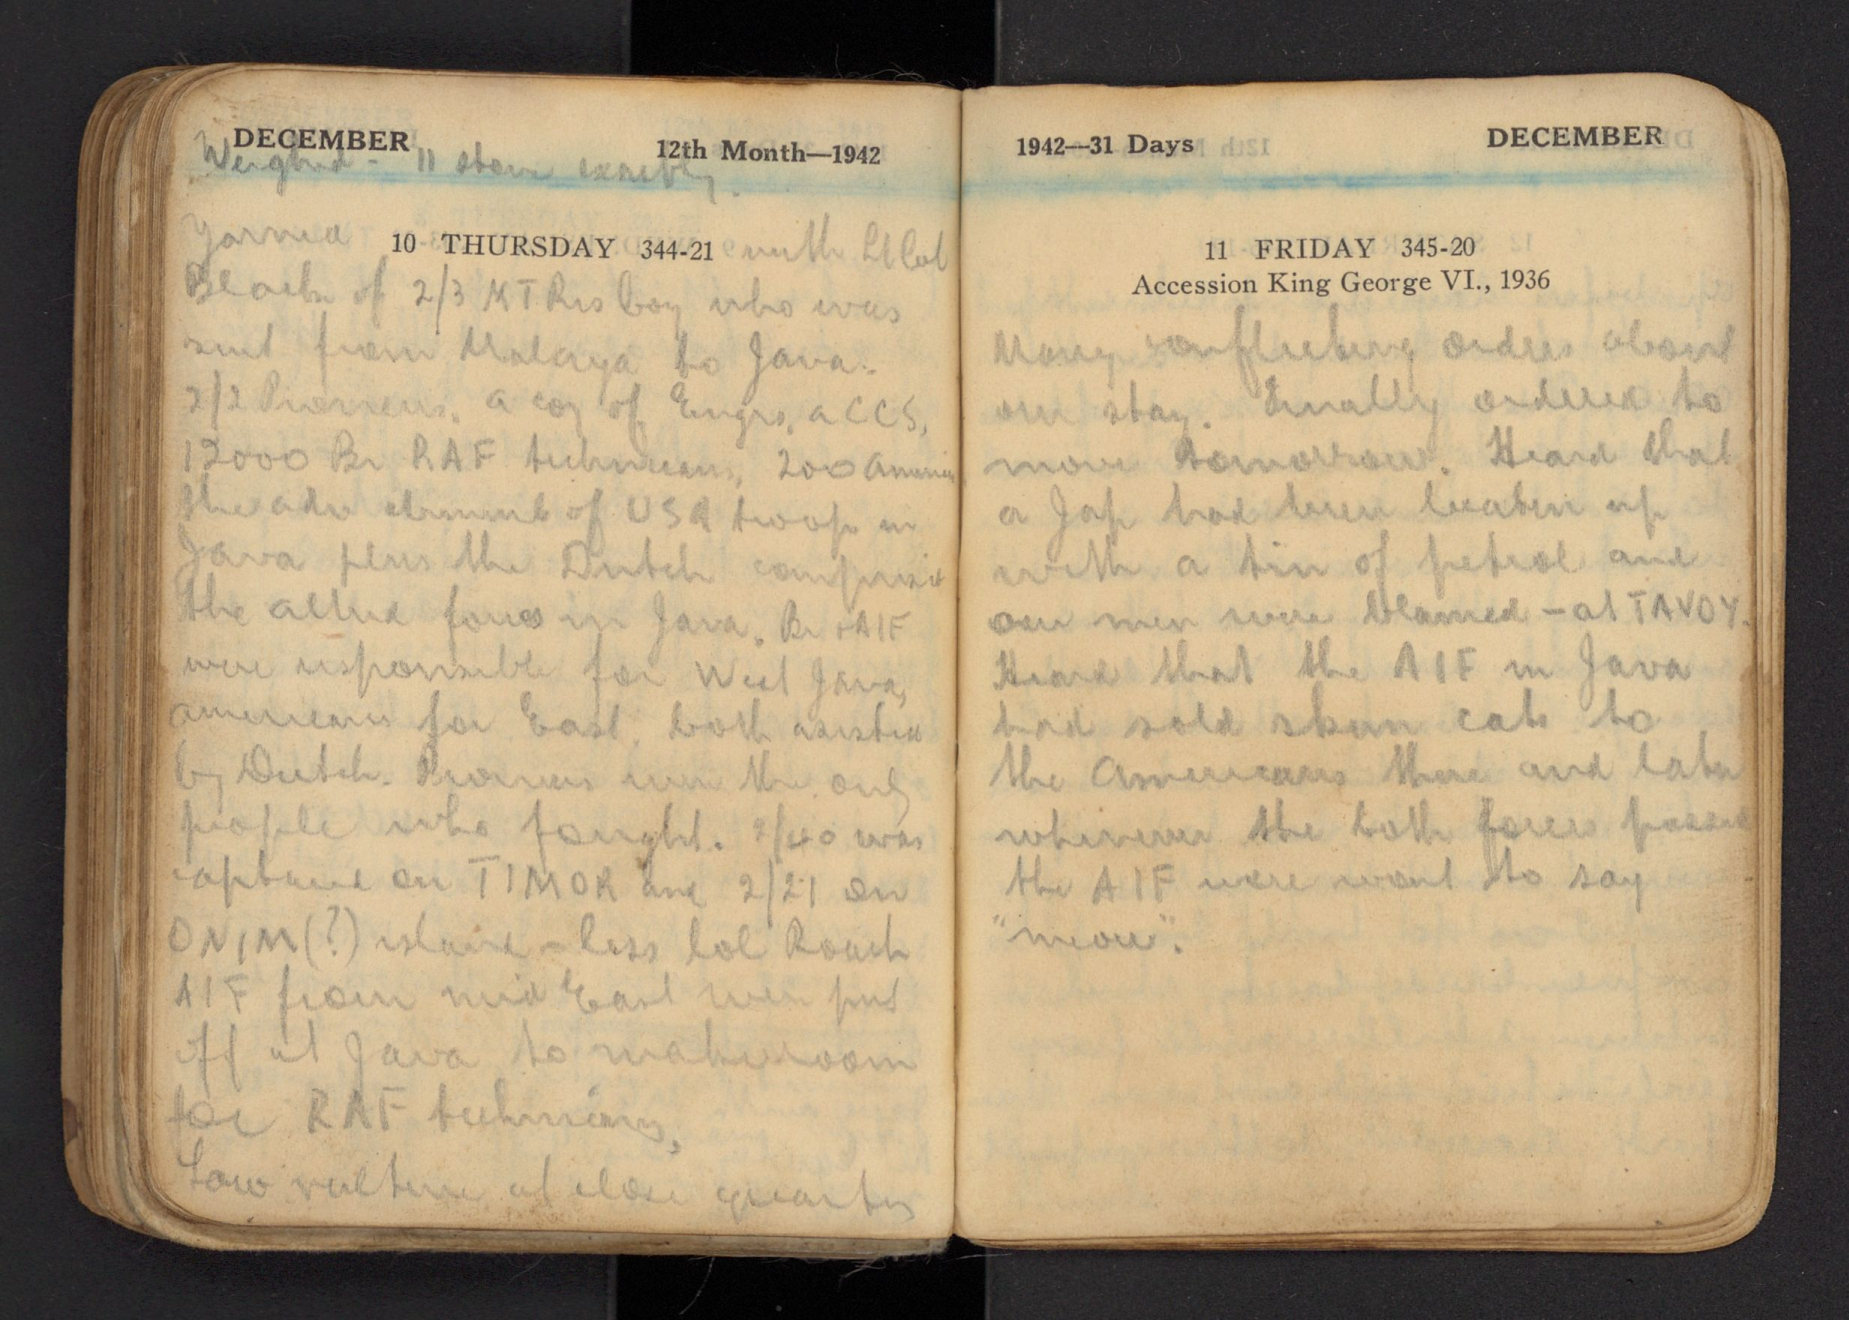 DECEMBER 12th Month—1942
Weighed - 11 stone exactly.
10 THURSDAY 344-21
Yarned with Lt Col
Black of 2/3 MT Res Coy who was
sent from Malaya to Java.
2/2 Pioneers, a coy of Engrs, a CCS,
12000 Br RAF technicians, 200
the adv elements of USA troops in
Java plus the Dutch comprised
the allied forces in Java. Br + AIF
were responsible for West Java,
americans for East, both assisted
by Dutch. Pioneers were the only
people who fought. 2/40 was
captured on TIMOR and 2/21 on
ONIM(?) island - less Col Roach
AIF from mid East were put
off at Java to make room
for RAF
Saw vulture at close quarters
1942—31 Days DECEMBER
11 FRIDAY 345-20
Accession King George VI., 1936
Many conflicting orders about
our stay. Finally ordered to
move tomorrow. Heard that
a Jap had been beaten up
with a tin of petrol and
our men were blamed - at TAVOY.
Heard that the AIF in Java
had sold skun cats to
the Americans there and later
whenever the both forces passed
the AIF were wont to say
"meow".